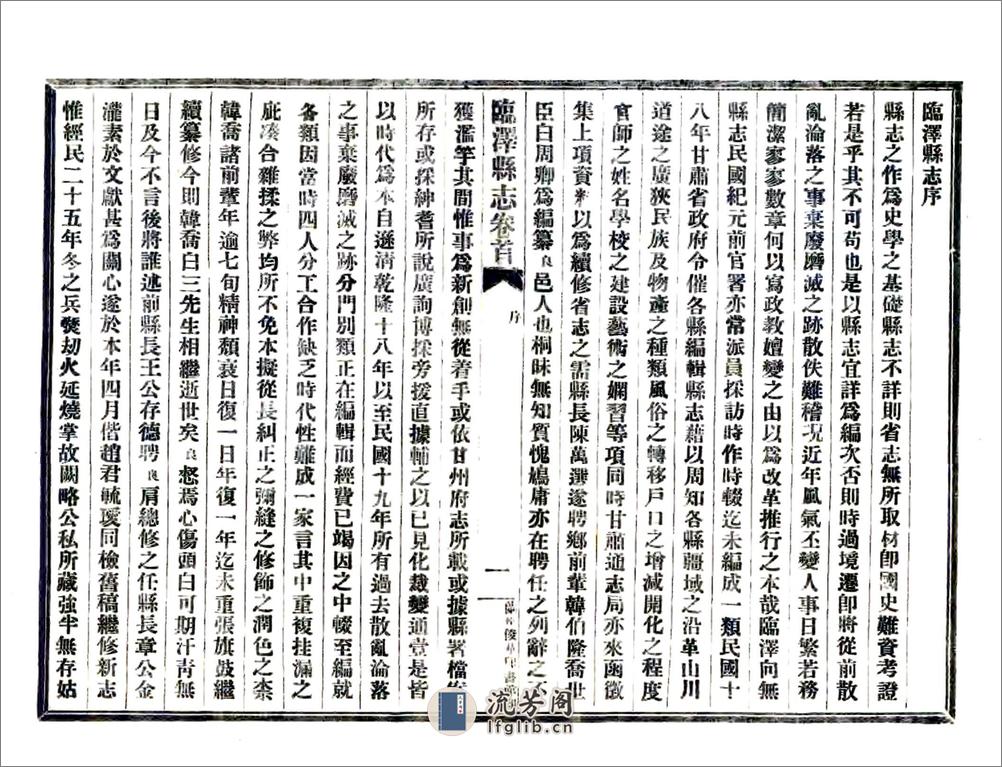 臨澤縣志序
縣志之作爲史學之基礎縣志不詳則省志無所取材卽國史難資考證
若是乎其不可苟也是以縣志宜詳爲編次否則時過境遷卽將從前散
亂淪落之事棄廢磨滅之跡散佚難稽況近年風氣丕變人事日繁若務
簡潔寥寥數章何以寫政教嬗變之由以爲改革推行之本哉臨澤向無
縣志民國紀元前官署亦常派員採訪時作時輟迄未編成一類民國十
八年甘肅省政府令催各縣編輯縣志藉以周知各縣疆域之沿革山川
道途之廣狹民族及物產之種類風俗之轉移戶口之增減開化之程度
官師之姓名學校之建設藝術之嫻習等項同時甘肅通志局亦來函徵
集上項資料以爲續修省志之需縣長陳萬選遂聘鄉前輩韓伯隆喬世
臣白周卿爲編纂良邑人也桐昧無知質愧樗庸亦在聘任之列辭之不
獲濫竽其間惟事爲新創無從着手或依甘州府志所載或據縣署檔
所存或採紳耆所說廣詢博採旁援直據輔之以己見化裁變通壹是皆
以時代爲本自遜清乾隆十八年以至民國十九年所有過去散亂淪落
之事棄廢磨滅之跡分門別類正在編輯而經費已竭因之中輟至編就
各類因當時四人分工合作缺乏時代性難成一家言其中重複挂漏之
疵湊合雜揉之弊均所不免本擬從長糾正之彌縫之修飾之潤色之柰
韓喬諸前輩年逾七旬精神頹衰日復一日年復一年迄未重張旗鼓繼
續纂修今則韓喬白三先生相繼逝世矣良惄焉心傷頭白可期汗青無
日及今不言後將誰述前縣長王公存德聘良肩總修之任縣長章公金
瀧素於文獻甚爲關心遂於本年四月偕趙君毓瓊同檢舊稿繼修新志
惟經民二十五年冬之兵燹劫火延燒掌故闕略公私所藏強半無存姑
臨澤縣志卷首
序
一
俊華印書
流芳阁
lfglib.cn